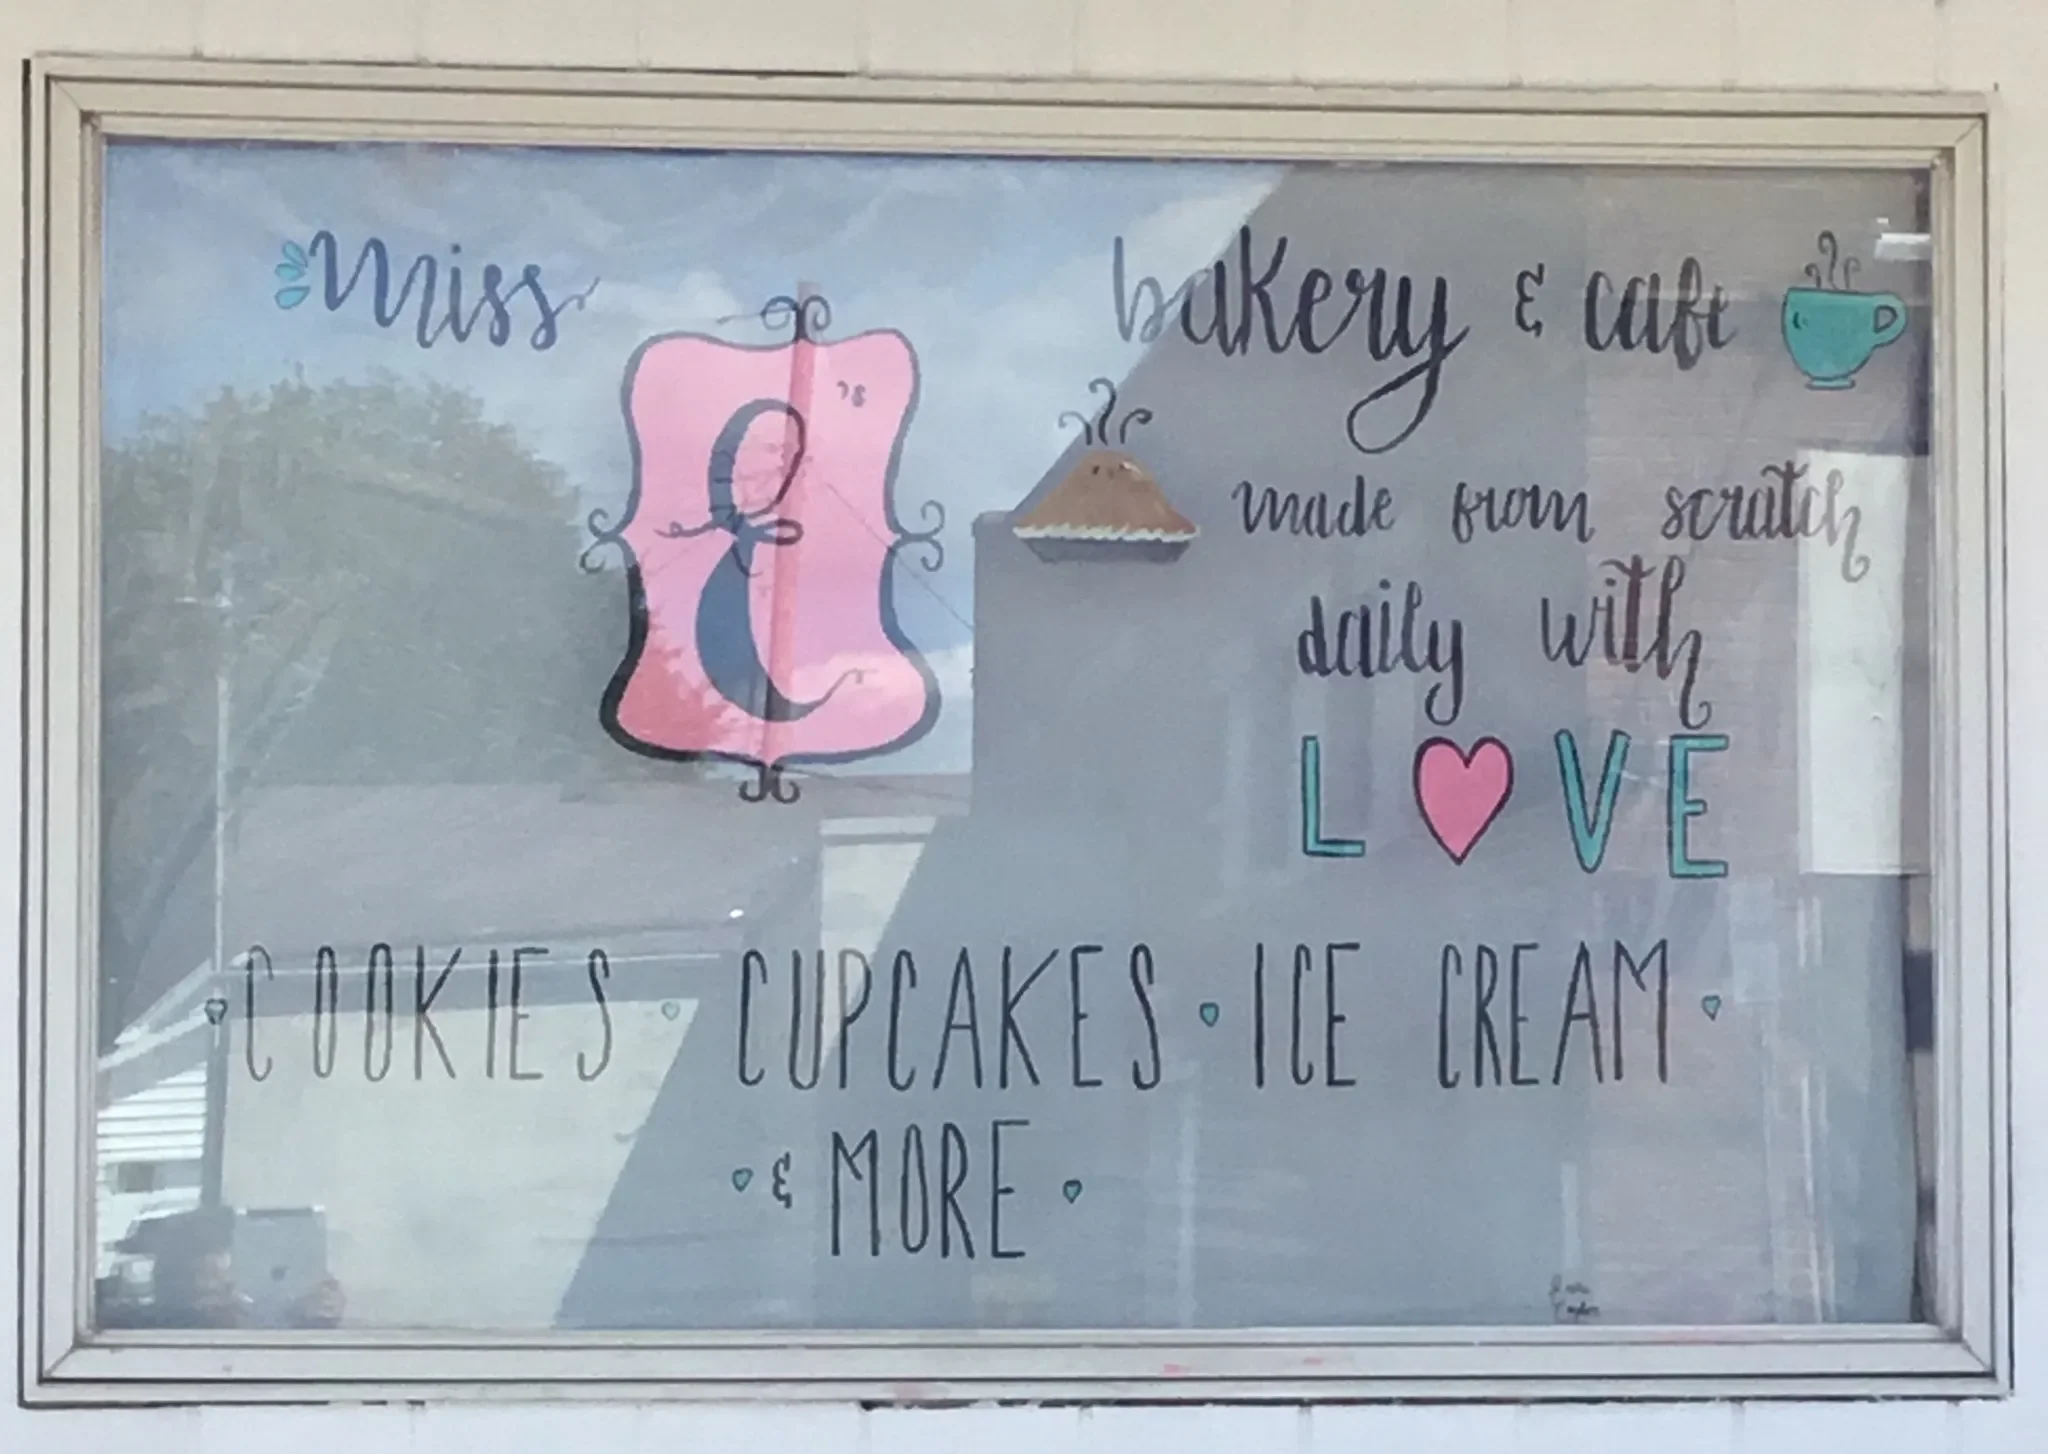 miss E's bakery & cafe
made from scratch
daily with
L♥VE
• COOKIES • CUPCAKES • ICE CREAM •
• & MORE •